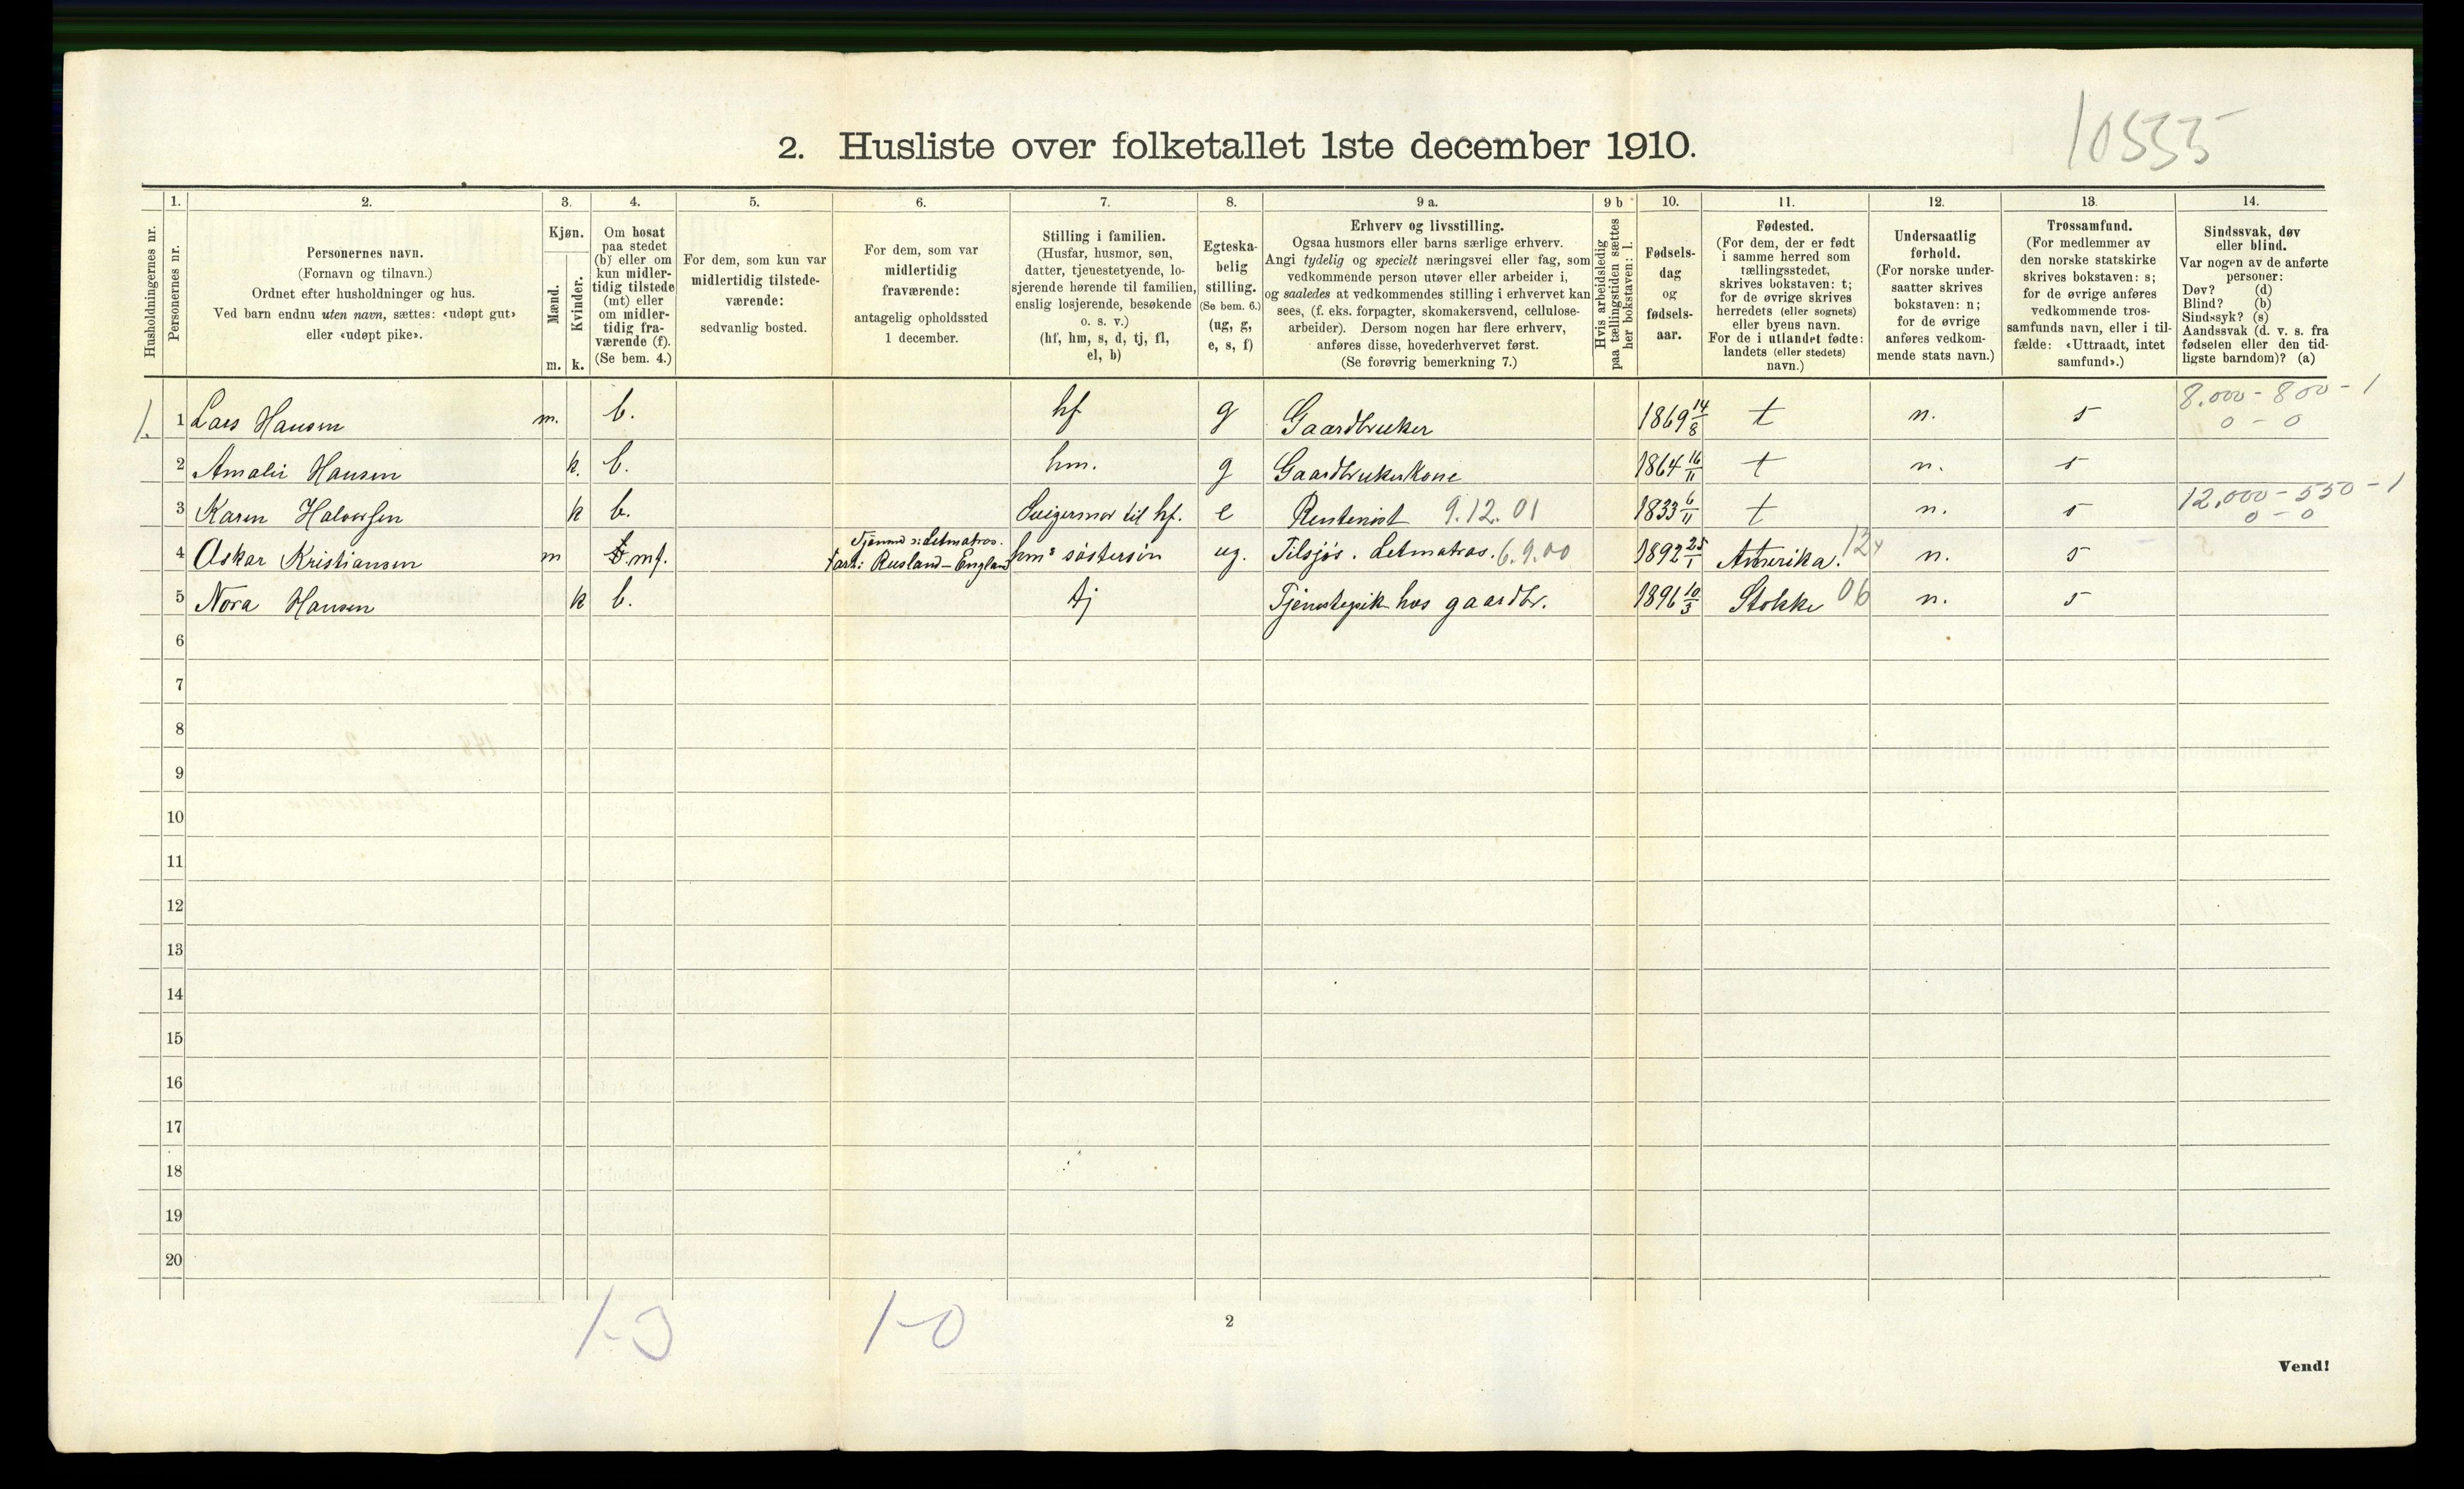 10535
2. Husliste over folketallet 1ste december 1910.
Husholdningernes nr.
1. 2. 3. 4. 5. 6. 7. 8. 9 a. 9 b 10. 11. 12. 13. 14.
Personernes nr.
Personernes navn.
(Fornavn og tilnavn.)
Ordnet efter husholdninger og hus.
Ved barn endnu uten navn, sættes: «udøpt gut»
eller «udøpt pike».
Kjøn.
Mænd.
Kvinder.
m. k.
Om bosat
paa stedet
(b) eller om
kun midler-
tidig tilstede
(mt) eller
om midler-
tidig fra-
værende (f).
(Se bem. 4.)
For dem, som kun var
midlertidig tilstede-
værende:
sedvanlig bosted.
For dem, som var
midlertidig
fraværende:
antagelig opholdssted
1 december.
Stilling i familien.
(Husfar, husmor, søn,
datter, tjenestetyende, lo-
sjerende hørende til familien,
enslig losjerende, besøkende
o. s. v.)
(hf, hm, s, d, tj, fl,
el, b)
Egteska-
belig
stilling.
(Se bem. 6.)
(ug, g,
e, s, f)
Erhverv og livsstilling.
Ogsaa husmors eller barns særlige erhverv.
Angi tydelig og specielt næringsvei eller fag, som
vedkommende person utøver eller arbeider i,
og saaledes at vedkommendes stilling i erhvervet kan
sees, (f. eks. forpagter, skomakersvend, cellulose-
arbeider). Dersom nogen har flere erhverv,
anføres disse, hovederhvervet først.
(Se forøvrig bemerkning 7.)
Hvis arbeidsledig
paa tællingstiden sættes
her bokstaven: l.
Fødsels-
dag
og
fødsels-
aar.
Fødested.
(For dem, der er født
i samme herred som
tællingsstedet,
skrives bokstaven: t;
for de øvrige skrives
herredets (eller sognets)
eller byens navn.
For de i utlandet fødte:
landets (eller stedets)
navn.)
Undersaatlig
forhold.
(For norske under-
saatter skrives
bokstaven: n;
for de øvrige
anføres vedkom-
mende stats navn.)
Trossamfund.
(For medlemmer av
den norske statskirke
skrives bokstaven: s;
for de øvrige anføres
vedkommende tros-
samfunds navn, eller i til-
fælde: «Uttraadt, intet
samfund».)
Sindssvak, døv
eller blind.
Var nogen av de anførte
personer:
Døv? (d)
Blind? (b)
Sindssyk? (s)
Aandssvak (d. v. s. fra
fødselen eller den tid-
ligste barndom)? (a)
1. 1 Lars Hansen m. b. hf g Gaardbruker 1869 14/8 t n. s 8.000 - 800 - 1
0 - 0
2 Amalie Hansen k. b. hm. g Gaardbrukerkone 1864 16/11 t n. s
3 Karen Halvorsen k b. Svigermor til hf. e Rentenist 9.12.01 1833 6/11 t n. s 12,000 - 550 - 1
0 - 0
4 Oskar Kristiansen m mf. Fart: Rusland - England hms søstersøn ug. Tilsjøs. Letmatros. 6.9.00 1892 25/1 Amerika. 124 n. s
5 Nora Hansen k b. tj Tjenestepik hos gaardbr. 1896 10/3 Stokke 06 n. s
6
7
8
9
10
11
12
13
14
15
16
17
18
19
20
1-3 1-0
2
Vend!